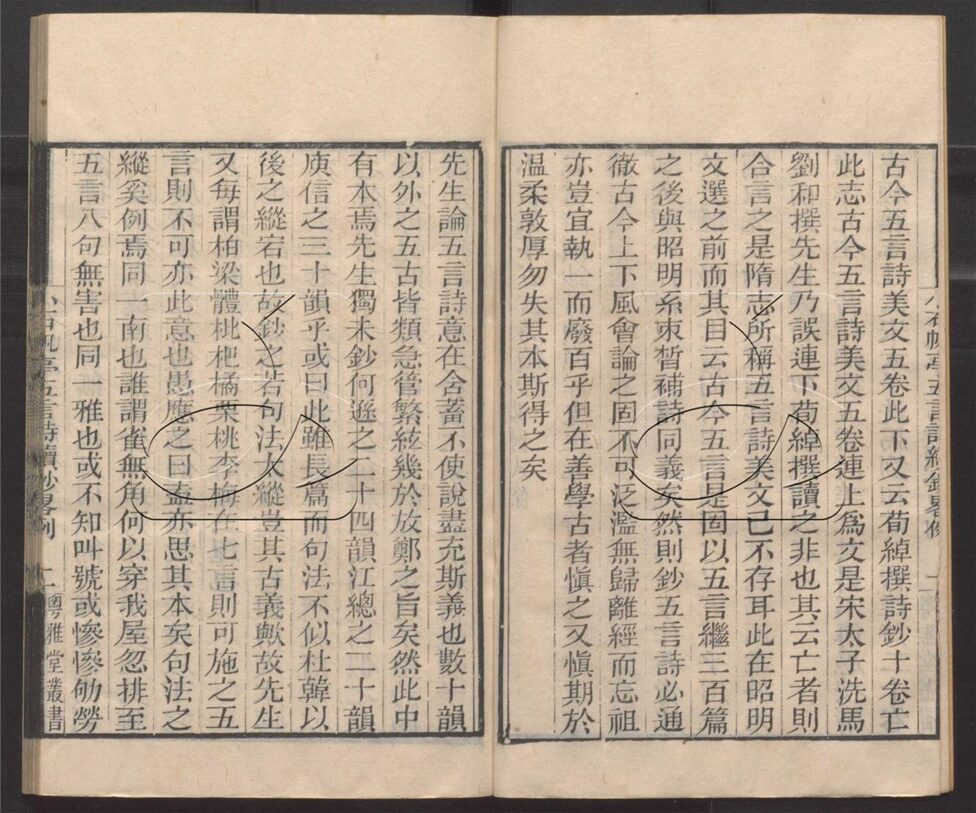 古今五言詩美文五卷此下又云荀綽撰詩鈔十卷亡
此志古今五言詩美文五卷連上爲文是宋太子洗馬
劉和撰先生乃誤連下荀綽撰讀之非也其云亡者則
合言之是隋志所稱五言詩美文已不存耳此在昭明
文選之前而其目云古今五言是固以五言繼三百篇
之後與昭明系束晳補詩同義矣然則鈔五言詩必通
徹古今上下風會論之固不可泛濫無歸離經而忘祖
亦豈宜執一而廢百乎但在善學古者愼之又愼期於
温柔敦厚勿失其本斯得之矣
先生論五言詩意在含蓄不使說盡充斯義也數十韻
以外之五古皆類急管繁絃幾於放鄭之旨矣然此中
有本焉先生獨未鈔何遜之二十四韻江總之二十韻
庾信之三十韻乎或曰此雖長篇而句法不似杜韓以
後之縱宕也故鈔之若句法太縱豈其古義歟故先生
又每謂柏梁體枇杷橘栗桃李梅在七言則可施之五
言則不可亦此意也愚應之曰盍亦思其本矣句法之
縱奚例焉同一南也誰謂雀無角何以穿我屋忽排至
五言八句無害也同一雅也或不知叫號或慘慘劬勞
亭五言詩續鈔畧例
粵雅堂叢書